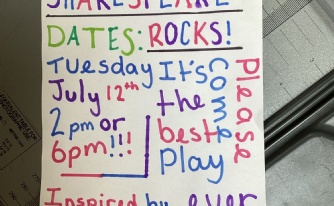 SHAKESPEARE
DATES: ROCKS!
Tuesday It's
July 12th the
2 pm or best
6pm!!! Play
Please
come
Inspired by ever